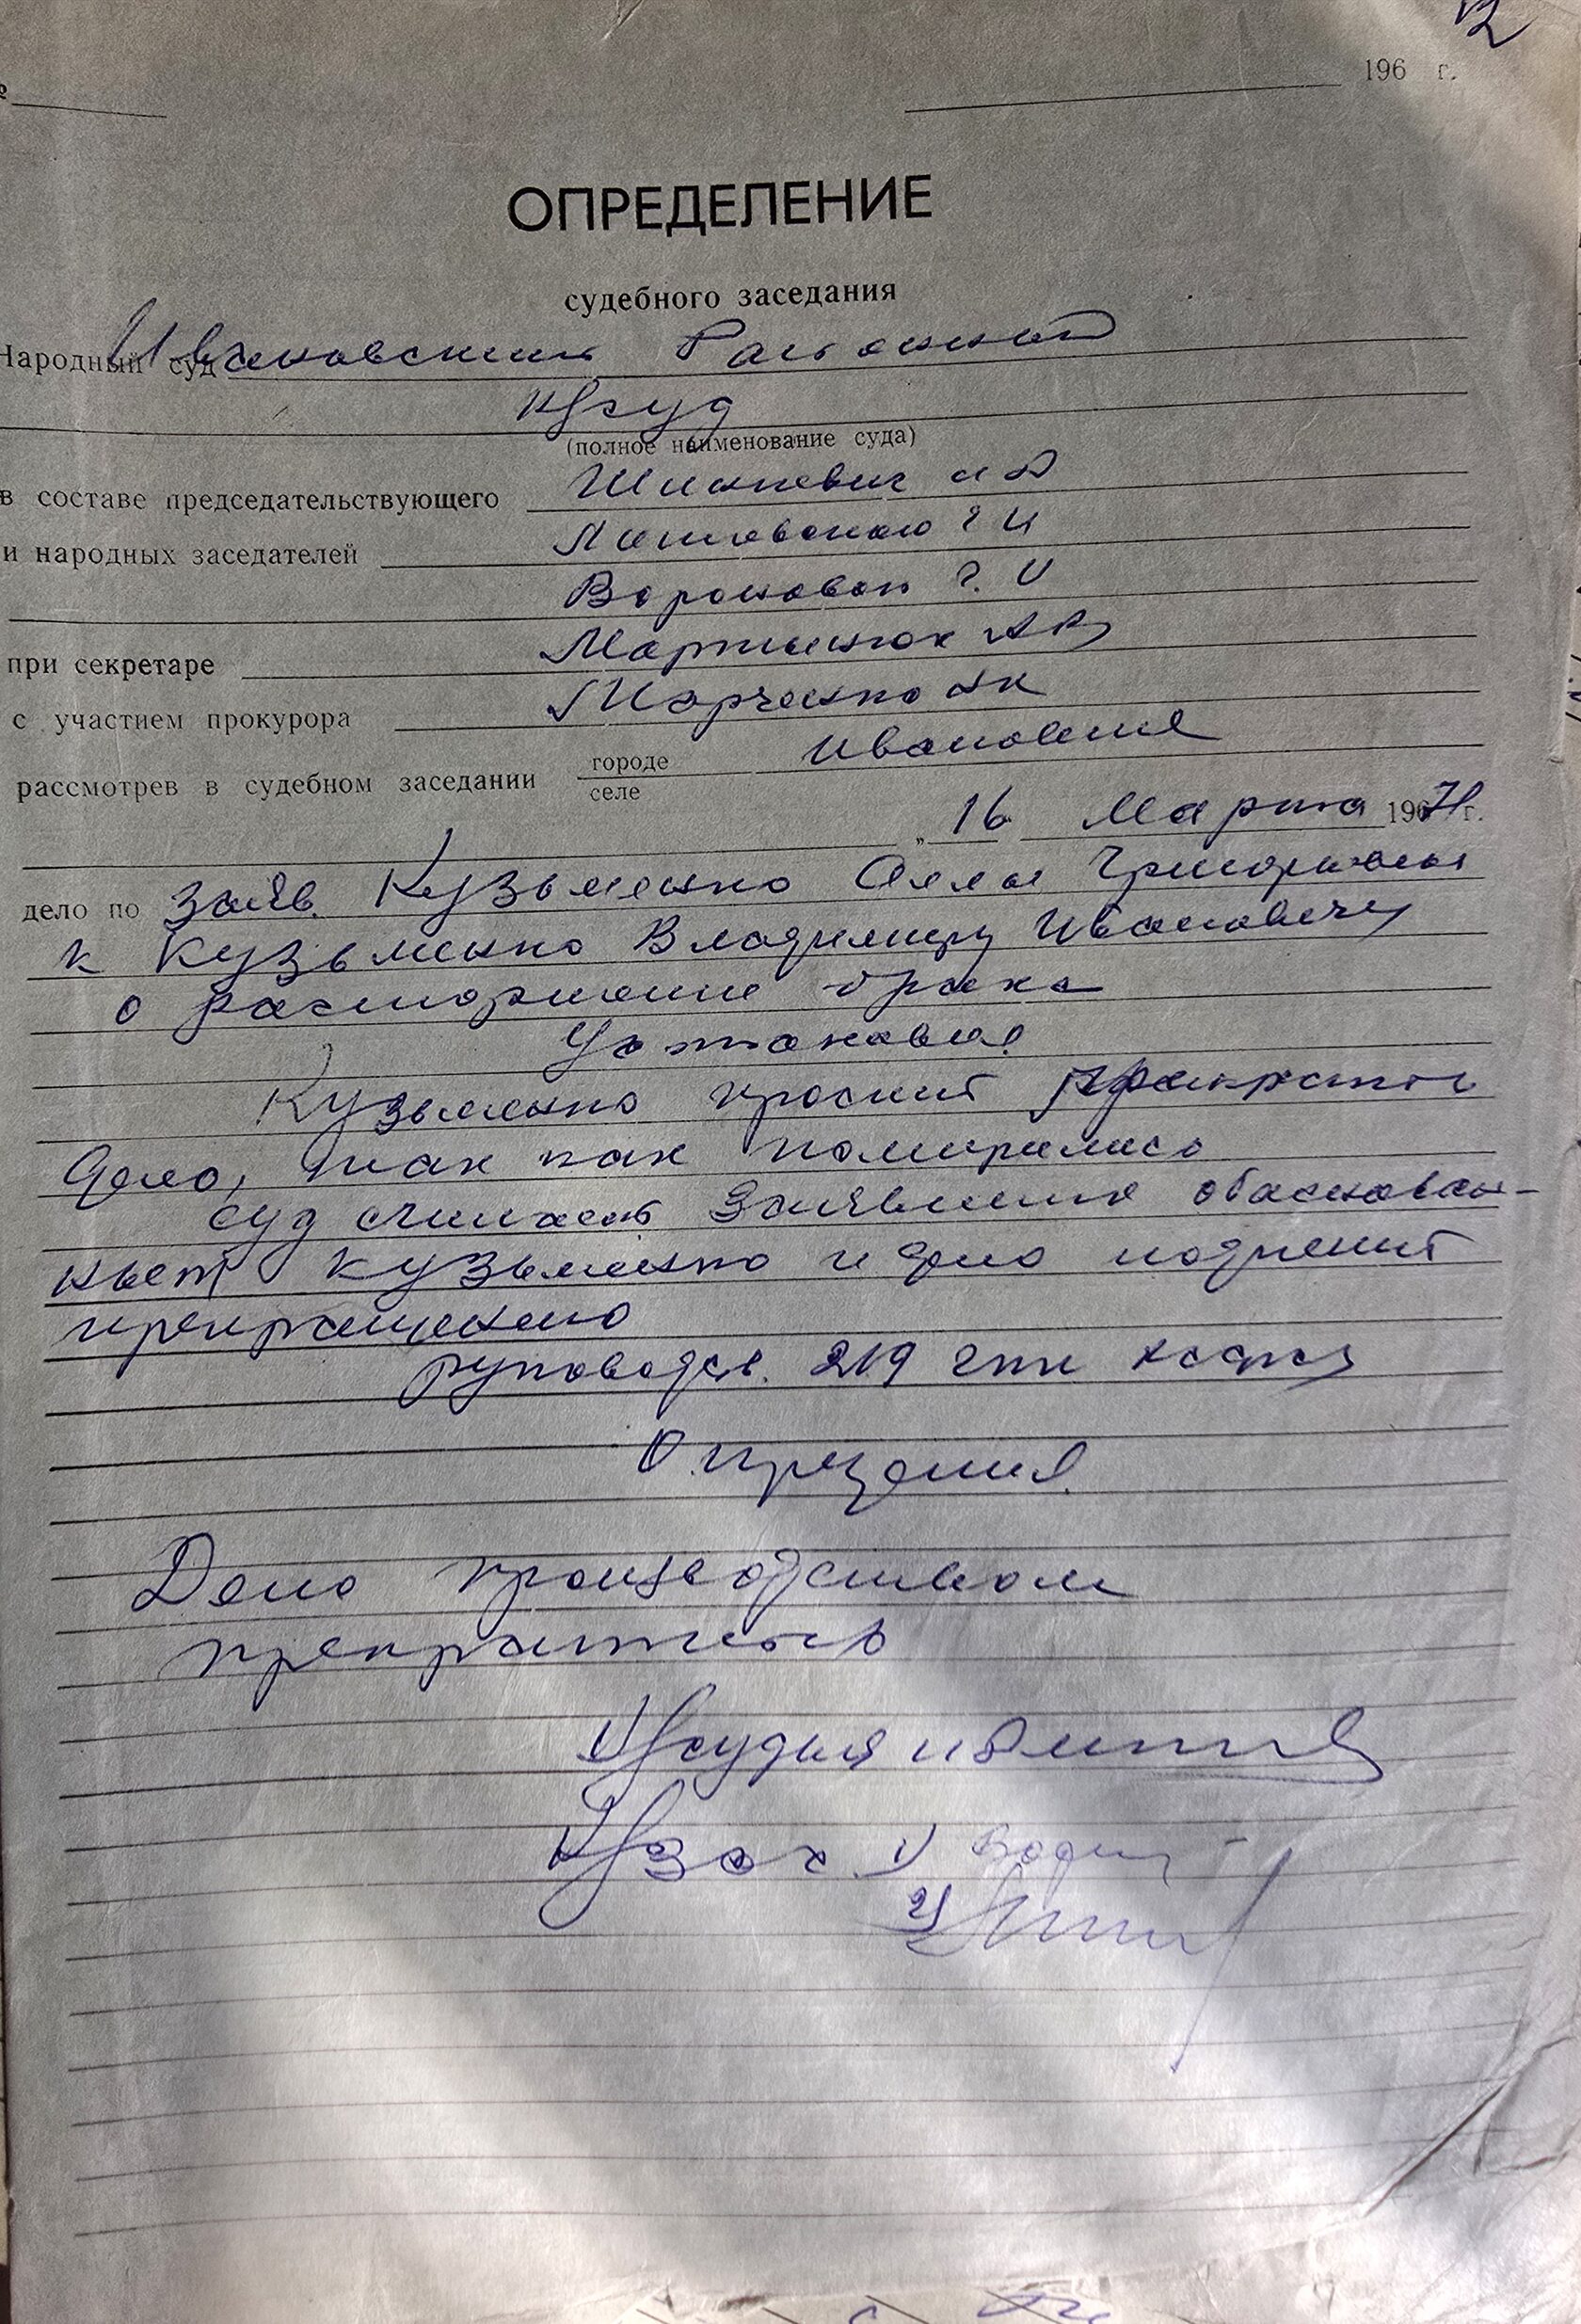 12
№ 196 г.
ОПРЕДЕЛЕНИЕ
судебного заседания
Народный суд Ивановский Районный
нрсуд
(полное наименование суда)
в составе председательствующего Шинкевич и А
и народных заседателей Г И
Вороновой Г. И
при секретаре Мартынюк АВ
с участием прокурора Марченко АК
рассмотрев в судебном заседании городе селе Ивановке
„16 Марта 1971 г.
дело по заяв. Кузьменко Аллы Григорьевны
к Кузьменко Владимиру Ивановичу
о расторжение брака
Установил
Кузьменко просит прекратить
дело, так как помирились
суд считает заявления обаснован-
ным Кузьменко и дело подлежит
прекращению
руководств. 219 гпк
Определил.
Дело производством
прекратить
Нрсудья
Нрзас. 1)
2)